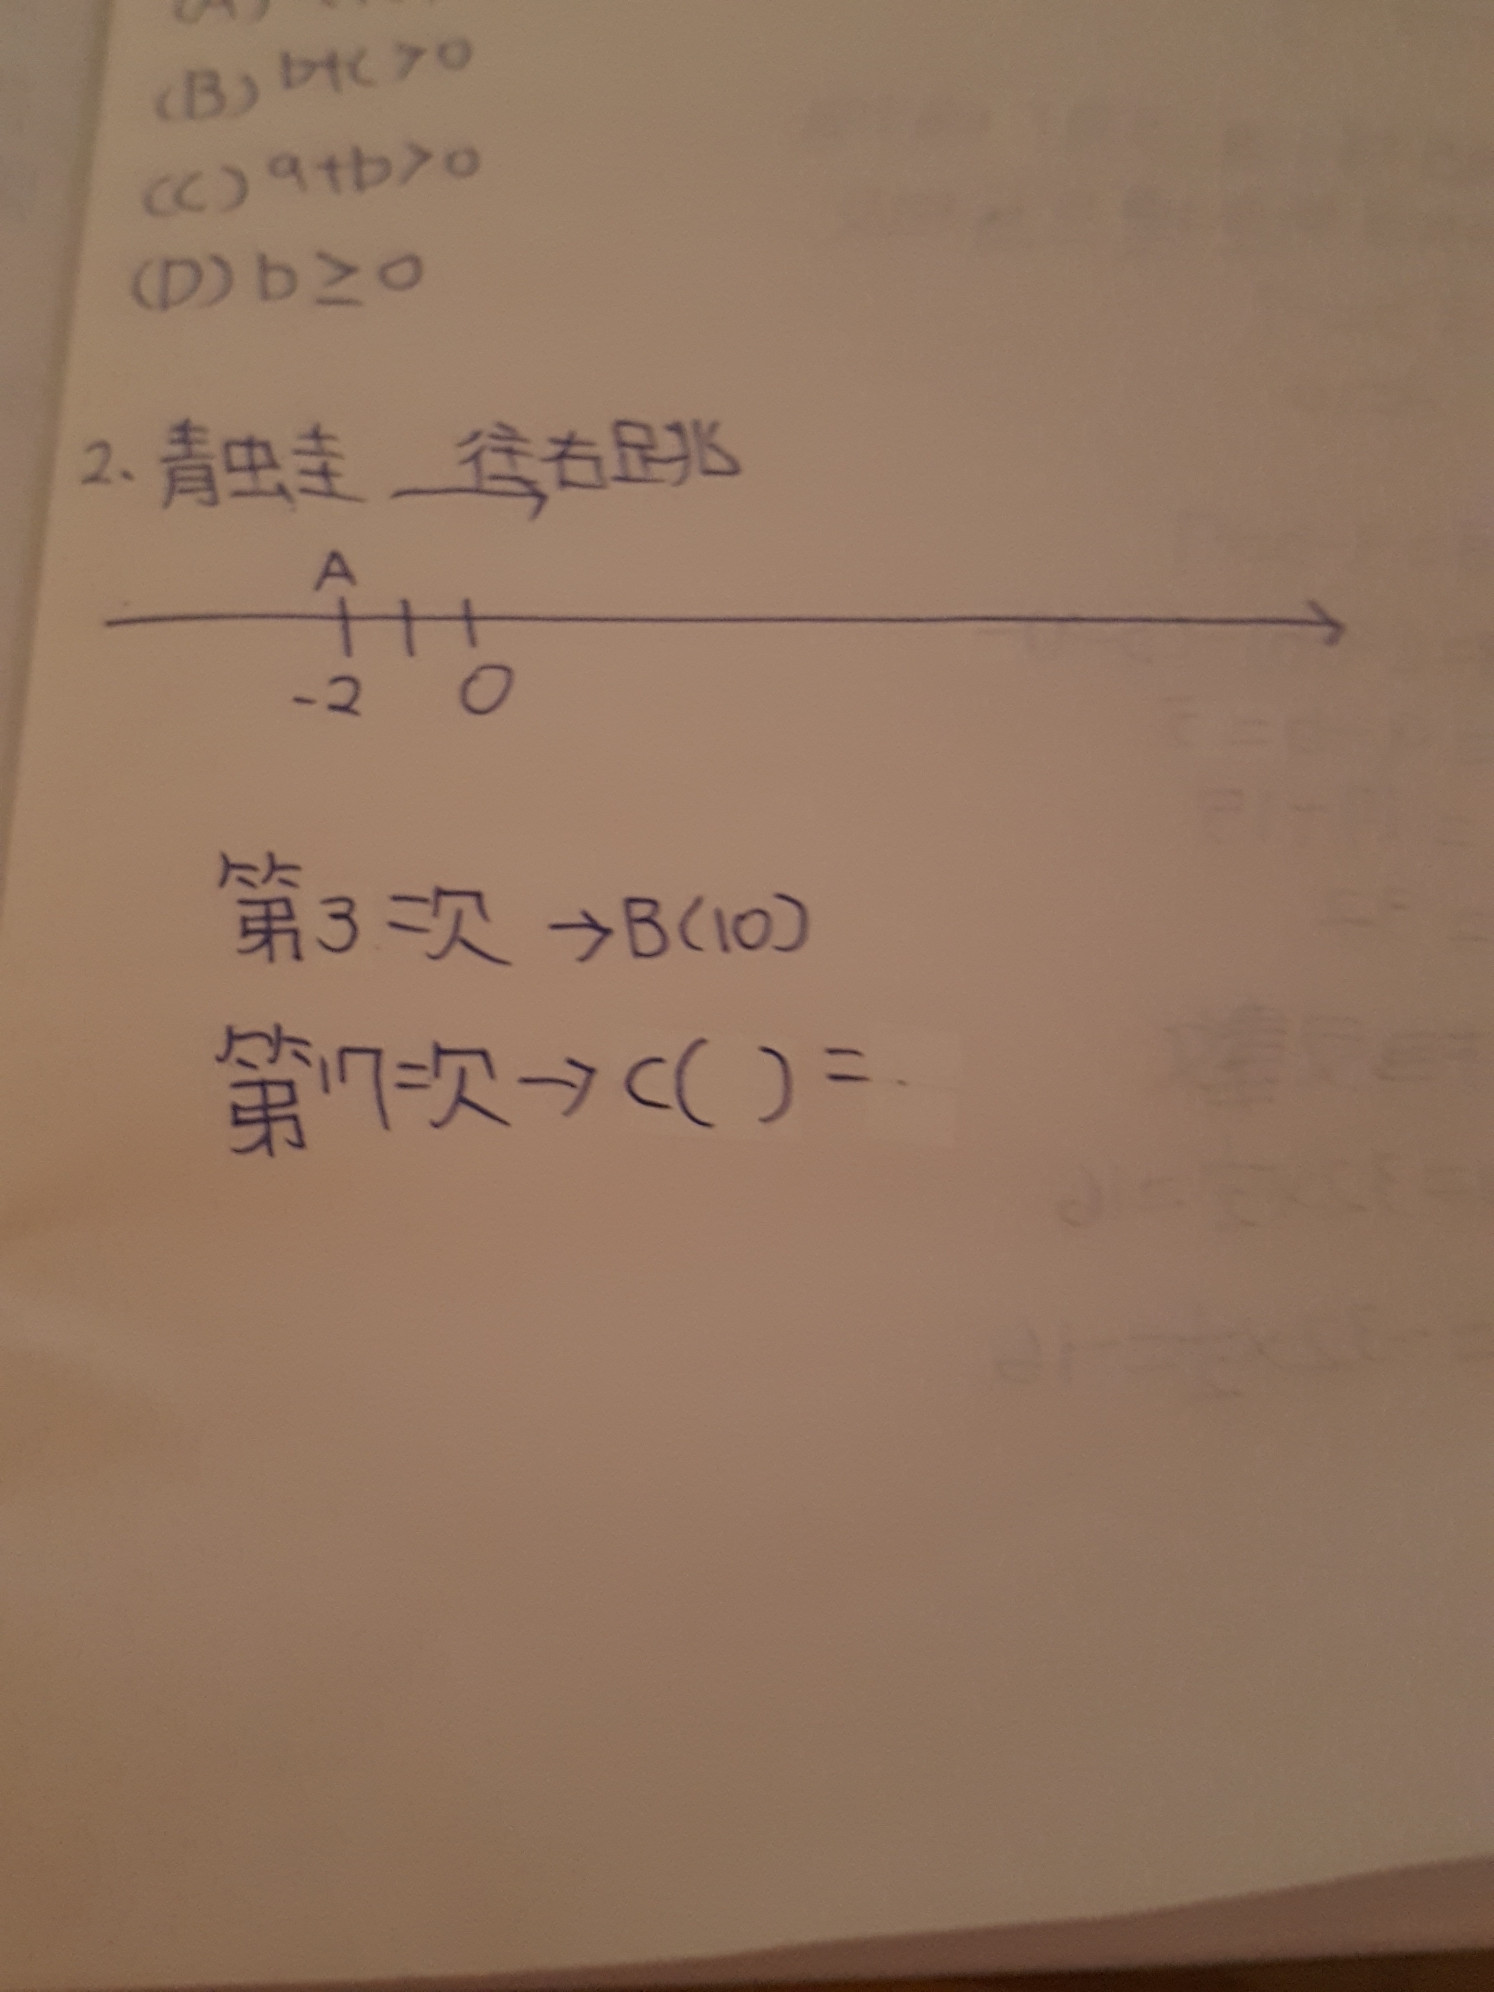 (B) b+c>0
(C) a+b>0
(D) b≥0
2. 青蛙 往右跳
A
-2 0
第3次 →B(10)
第17次→C( )=